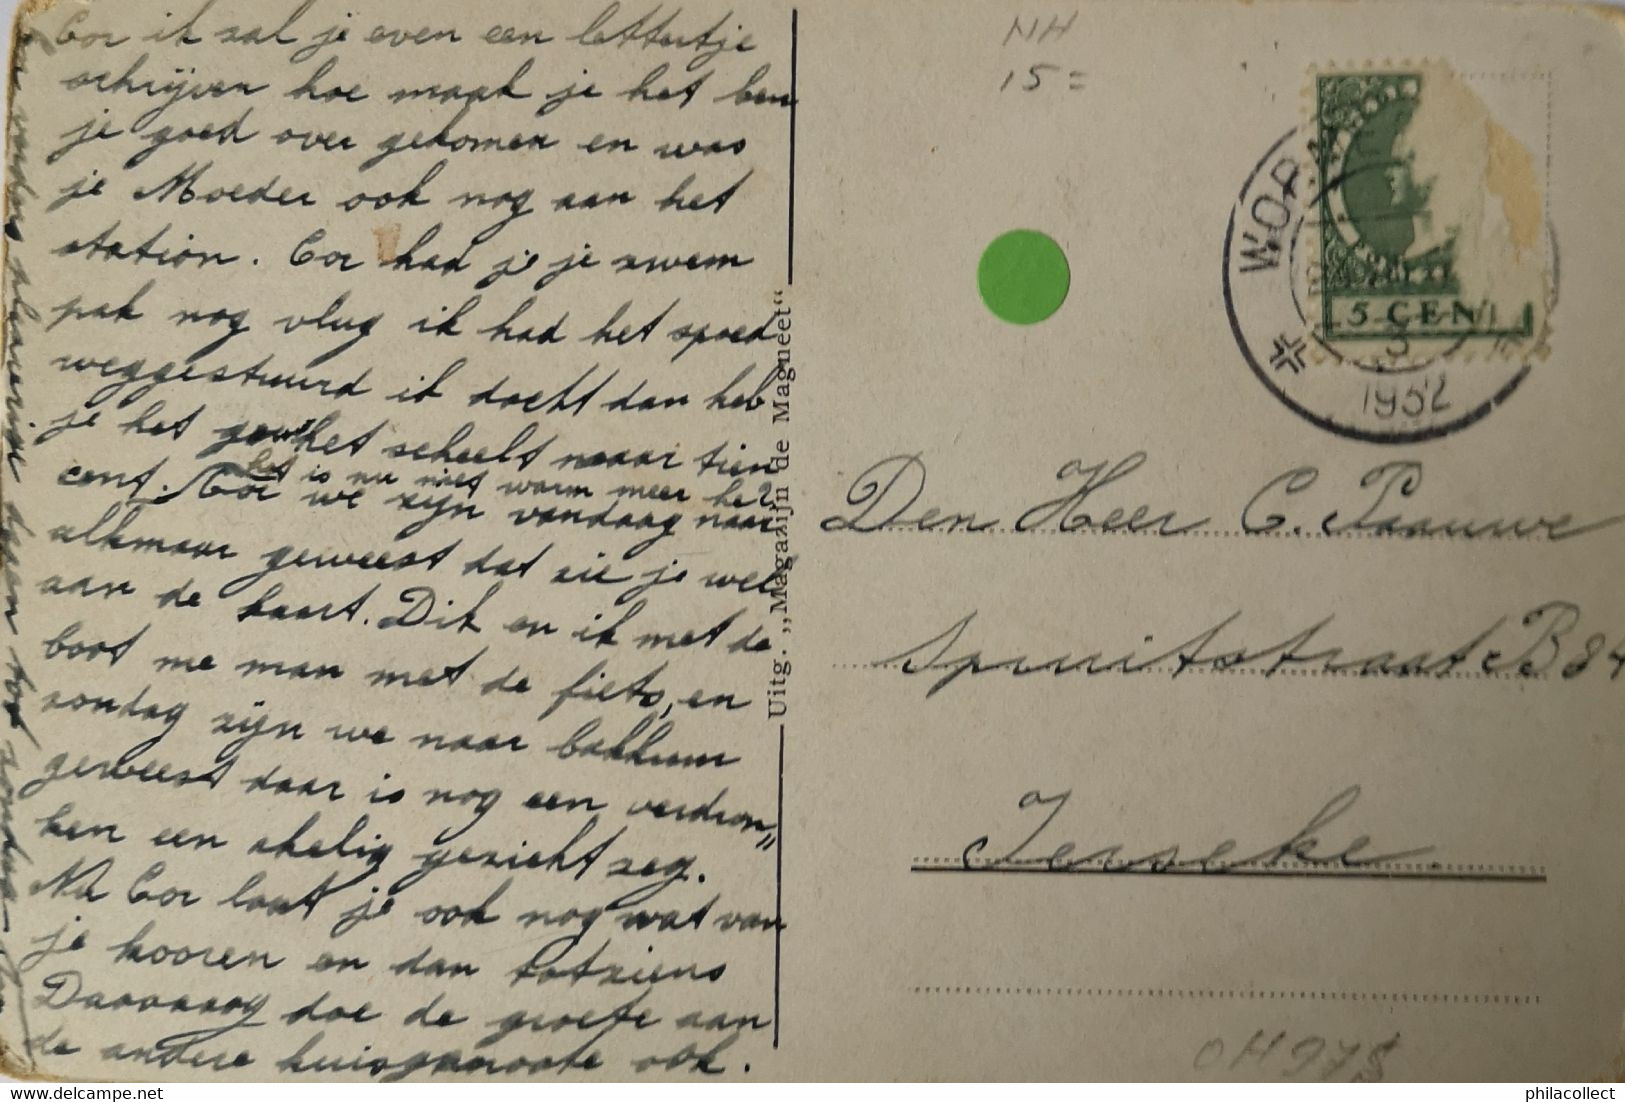 Cor ik zal je even een lettertje
schrijven hoe maak je het ben
je goed over gekomen en was
je Moeder ook nog aan het
station. Cor had je je zwem
pak nog vlug ik had het spoed
weggestuurd ik docht dan heb
je het gauw het scheelt maar tien
cent. Cor we zijn vandaag naar
het is nu niet warm meer he?
alkmaar geweest dat zie je wel
aan de kaart. Dik en ik met de
boot me man met de fiets, en
zondag zijn we naar bakkum
geweest daar is nog een verdron„
ken een akelig gezicht zeg.
Nu Cor laat je ook nog wat van
je hooren en dan totziens
Daaaaaag doe de groete aan
de andere huisgenoote ook.
Uitg. „Magazijn de Magneet“
NH
15=
5 CEN
1932
Den Heer C. Paauwe
Spuitstraat B 84
Ierseke
OH 975
philacollect